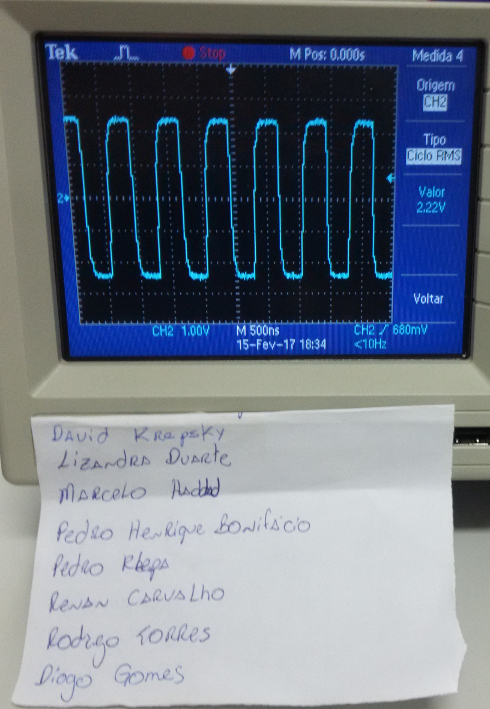 Tek Stop M Pos: 0.000s Medida 4
Origem
CH2
Tipo
Ciclo RMS
Valor
2.22V
2
Voltar
CH2 1.00V M 500ns CH2 680mV
15-Fev-17 18:34 <10Hz
DAVID Krepsky
LIZANDRA DUARTE
MARCELO
PEDRO HENRIQUE BONIFÁCIO
PEDRO
RENAN CARVALHO
RODRIGO TORRES
DIOGO GOMES